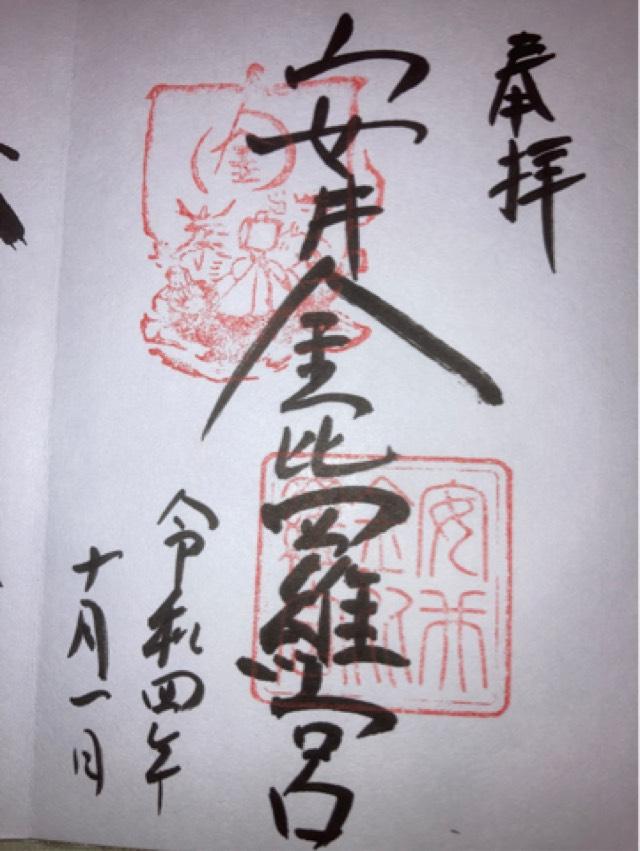 奉拝
安井金比羅宮
令和四年
十月一日
金
安井
金比